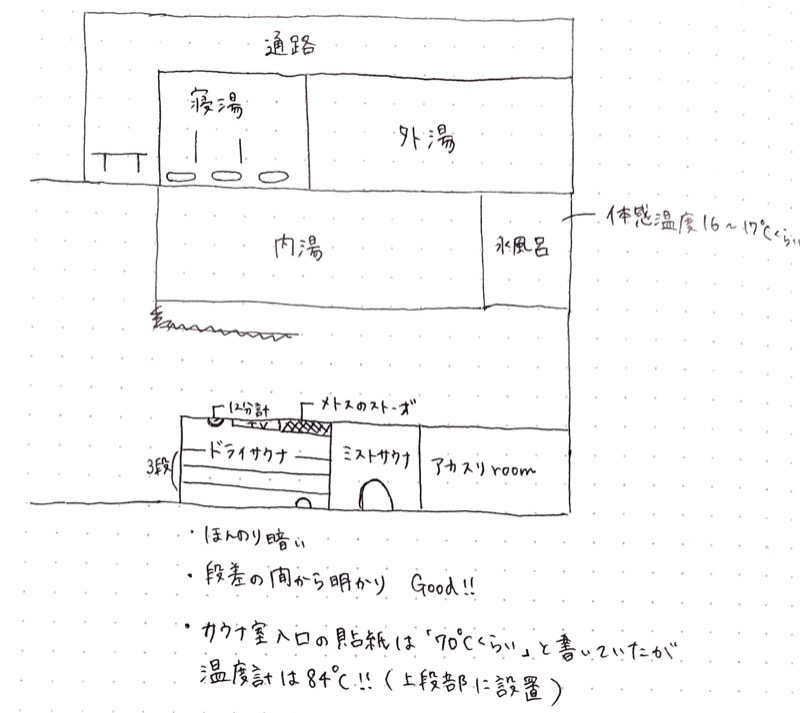 通路
寝湯
外湯
内湯
水風呂
体感温度16〜17℃くらい
12分計
メトスのストーブ
TV
3段
ドライサウナ
ミストサウナ
アカスリroom
・ほんのり暗い
・段差の間から明かり Good!!
・サウナ室入口の貼紙は「70℃くらい」と書いていたが
温度計は84℃!!(上段部に設置)